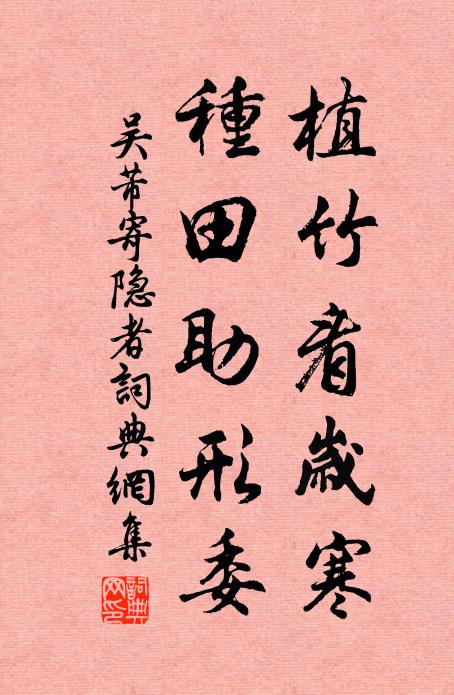 植竹看歲寒
種田助形委
吴芾寄隐者詞典網集
詞典網印